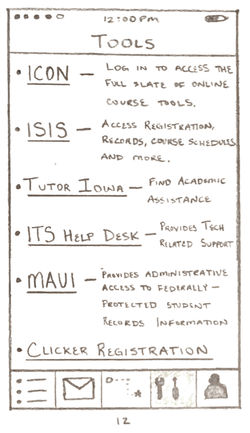 12:00PM
TOOLS
• ICON — LOG IN TO ACCESS THE
FULL SLATE OF ONLINE
COURSE TOOLS.
• ISIS — ACCESS REGISTRATION,
RECORDS, COURSE SCHEDULES,
AND MORE.
• TUTOR IOWA — FIND ACADEMIC
ASSISTANCE
• ITS HELP DESK — PROVIDES TECH
RELATED SUPPORT
• MAUI — PROVIDES ADMINISTRATIVE
ACCESS TO FEDERALLY —
PROTECTED STUDENT
RECORDS INFORMATION
• CLICKER REGISTRATION
12